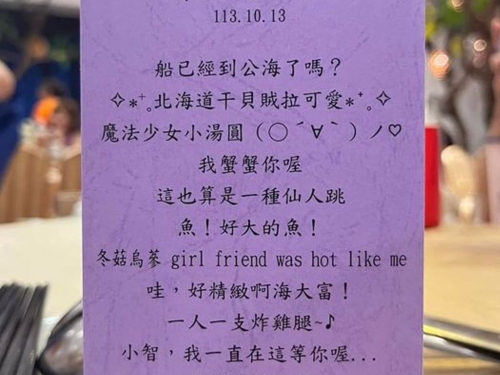 113.10.13
船已經到公海了嗎？
✧*⁺˳北海道干貝賊拉可愛*⁺˳✧
魔法少女小湯圓（◯´∀｀）ノ♡
我蟹蟹你喔
這也算是一種仙人跳
魚！好大的魚！
冬菇烏蔘 girl friend was hot like me
哇，好精緻啊海大富！
一人一支炸雞腿~♪
小智，我一直在這等你喔...